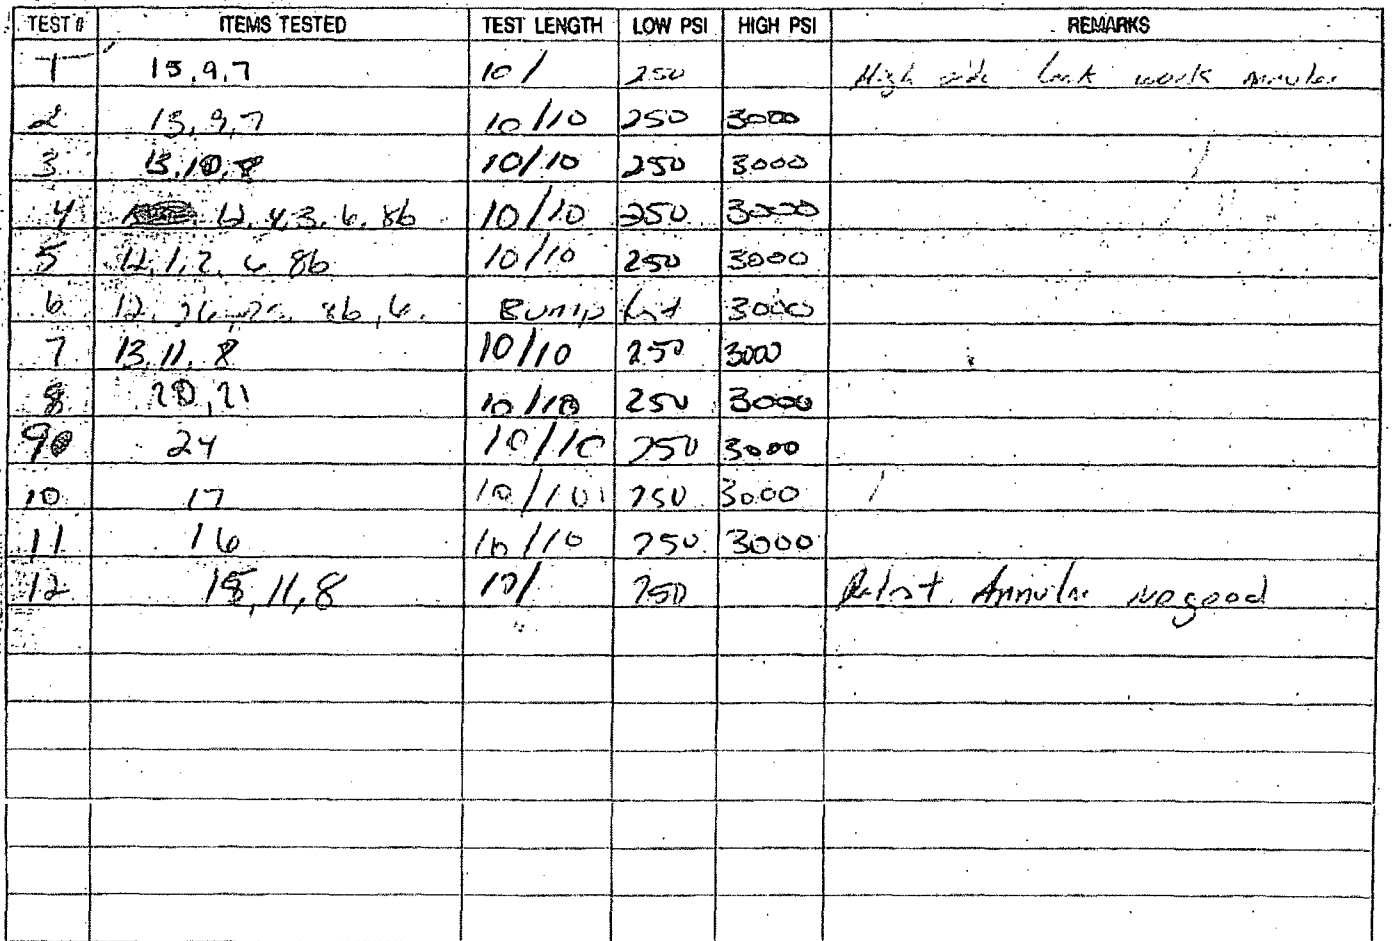 TEST # ITEMS TESTED TEST LENGTH LOW PSI HIGH PSI REMARKS
1 15,9,7 10/ 250 High side leak work Annular
2 13,9,7 10/10 250 3000
3 13,10,8 10/10 250 3000
4 12,4,3,6,8b 10/10 250 3000
5 12,1,2,6 8b 10/10 250 3000
6 12, 8b, 6. Bump 3000
7 13,11,8 10/10 250 3000
8 20,21 10/10 250 3000
9 24 10/10 250 3000
10 17 10/10 250 3000
11 16 10/10 250 3000
12 15,11,8 10/ 250 Retest Annular no good